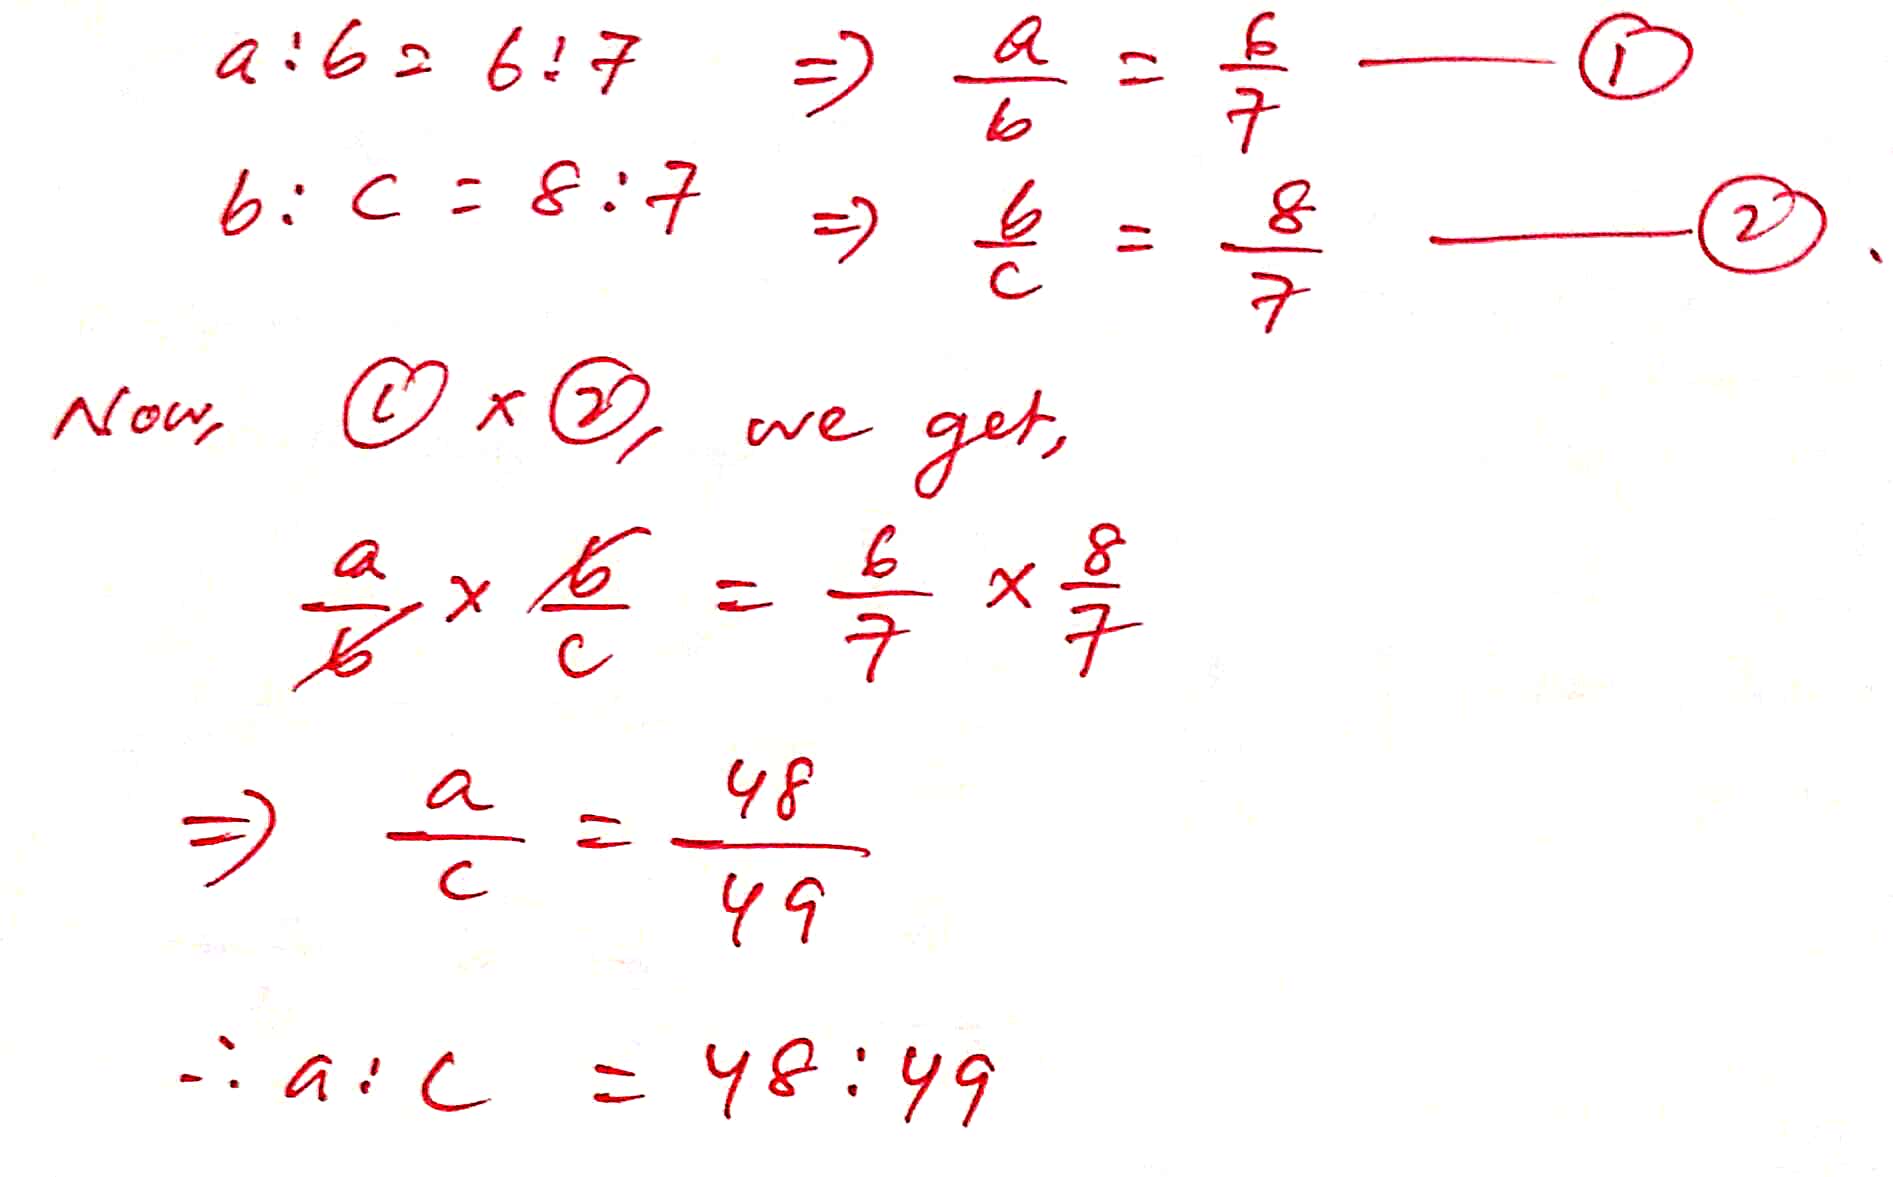 a : b = 6 : 7 ⇒ a/b = 6/7 —— ①
b : c = 8 : 7 ⇒ b/c = 8/7 —— ② .
Now, ① × ②, we get,
a/b × b/c = 6/7 × 8/7
⇒ a/c = 48/49
∴ a : c = 48 : 49